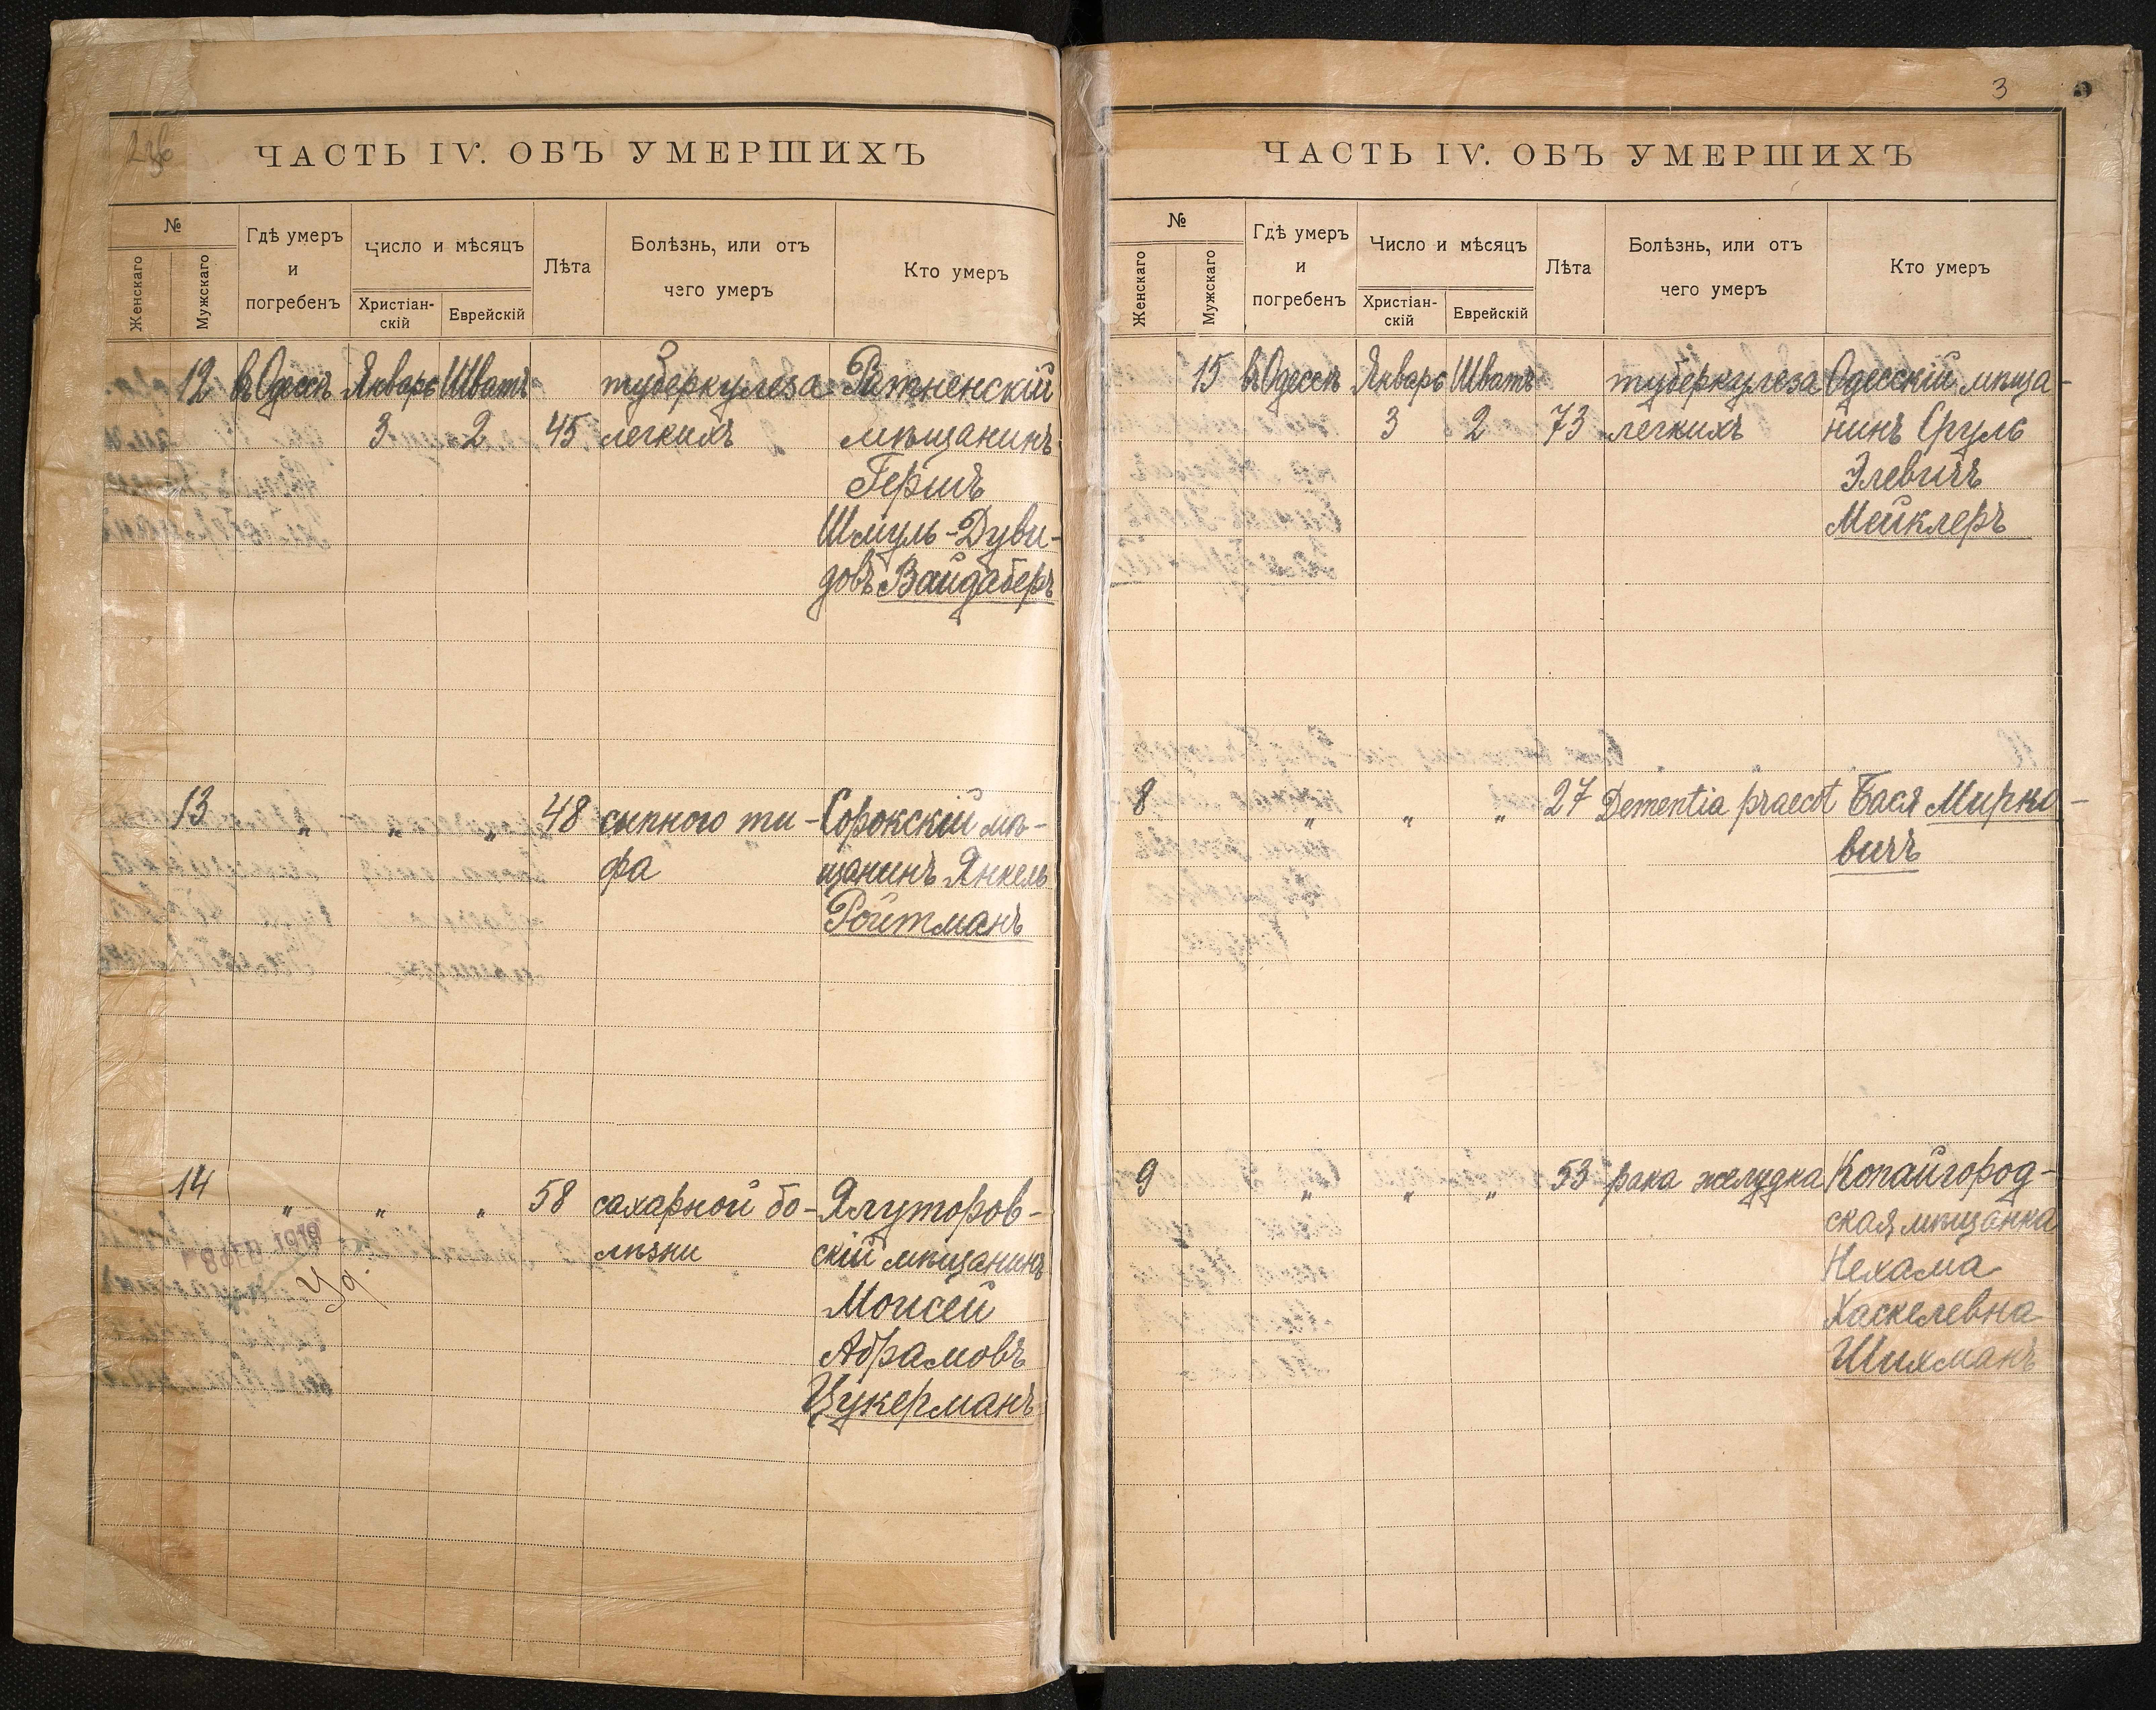 236
ЧАСТЬ IV. ОБЪ УМЕРШИХЪ
№
Женскаго
Мужскаго
Гдѣ умеръ
и
погребенъ
Число и мѣсяцъ
Христіан-
скій
Еврейскій
Лѣта
Болѣзнь, или отъ
чего умеръ
Кто умеръ
12 въ Одессѣ Январь Шватъ туберкулеза Ратненскій
3 2 45 легкихъ мѣщанинъ
Гершъ
Шмуль-Дуви-
довъ Вайдаберъ
13 „ „ „ 48 сыпного ти- Сорокскій мѣ-
фа щанинъ Янкель
Ройтманъ
14 „ „ „ 58 сахарной бо- Ялуторов-
лѣзни скій мѣщанинъ
Моисей
Абрамовъ
Цукерманъ
1919
3
ЧАСТЬ IV. ОБЪ УМЕРШИХЪ
№
Женскаго
Мужскаго
Гдѣ умеръ
и
погребенъ
Число и мѣсяцъ
Христіан-
скій
Еврейскій
Лѣта
Болѣзнь, или отъ
чего умеръ
Кто умеръ
15 въ Одессѣ Январь Шватъ туберкулеза Одесскій мѣща-
3 2 73 легкихъ нинъ Сруль
Элевичъ
Мейклеръ
8 „ „ „ 27 Dementia praecot Бася Мирко-
вичъ
9 „ „ „ 53 рака желудка Копайгород-
ская мѣщанка
Нехама
Хаскелевна
Шихманъ